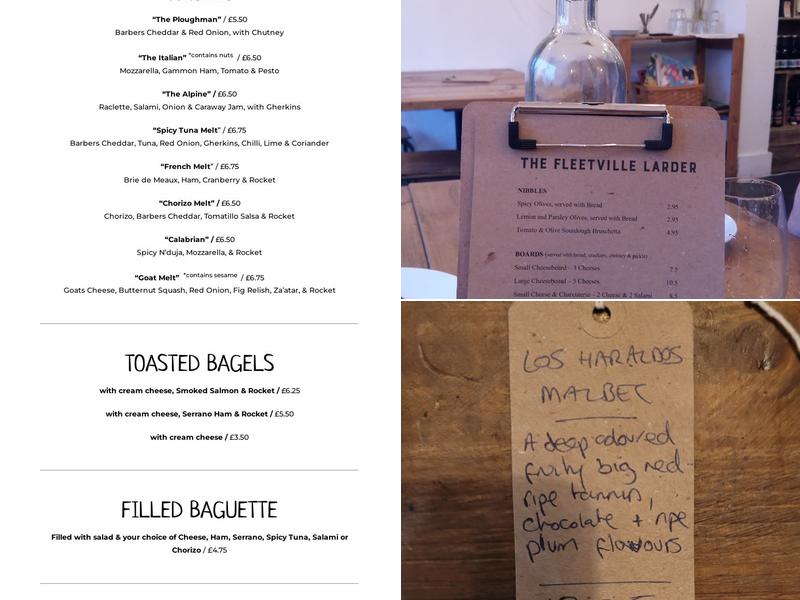 "The Ploughman" / £5.50
Barbers Cheddar & Red Onion, with Chutney
"The Italian" *contains nuts / £6.50
Mozzarella, Gammon Ham, Tomato & Pesto
"The Alpine" / £6.50
Raclette, Salami, Onion & Caraway Jam, with Gherkins
"Spicy Tuna Melt" / £6.75
Barbers Cheddar, Tuna, Red Onion, Gherkins, Chilli, Lime & Coriander
"French Melt" / £6.75
Brie de Meaux, Ham, Cranberry & Rocket
"Chorizo Melt" / £6.50
Chorizo, Barbers Cheddar, Tomatillo Salsa & Rocket
"Calabrian" / £6.50
Spicy N'duja, Mozzarella, & Rocket
"Goat Melt" *contains sesame / £6.75
Goats Cheese, Butternut Squash, Red Onion, Fig Relish, Za'atar, & Rocket
TOASTED BAGELS
with cream cheese, Smoked Salmon & Rocket / £6.25
with cream cheese, Serrano Ham & Rocket / £5.50
with cream cheese / £3.50
FILLED BAGUETTE
Filled with salad & your choice of Cheese, Ham, Serrano, Spicy Tuna, Salami or
Chorizo / £4.75
THE FLEETVILLE LARDER
NIBBLES
Spicy Olives, served with Bread 2.95
Lemon and Parsley Olives, served with Bread 2.95
Tomato & Olive Sourdough Bruschetta 4.95
BOARDS (served with bread, crackers, chutney & pickle)
Small Cheeseboard – 3 Cheeses 7.5
Large Cheeseboard – 5 Cheeses 10.5
Small Cheese & Charcuterie – 2 Cheese & 2 Salami 8.5
LOS HARALDOS
MALBEC
A deep coloured
fruity big red
ripe tannins,
chocolate + ripe
plum flavours